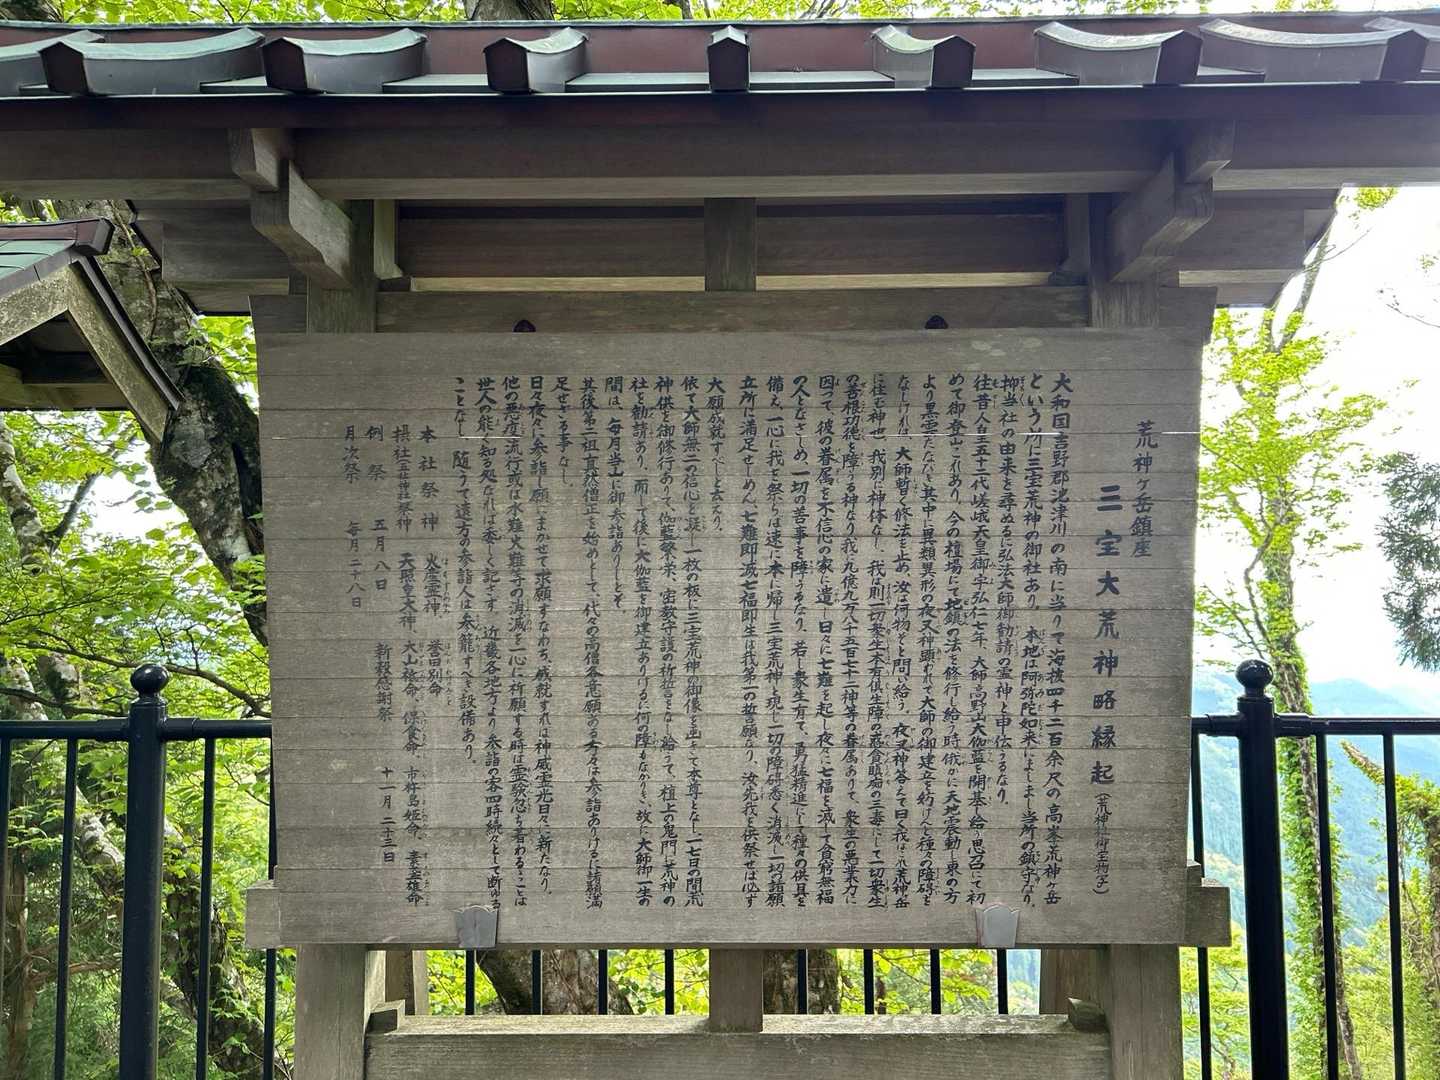 荒神ヶ岳鎮座
三宝大荒神略縁起（荒神社御宝物子）
大和国吉野郡池津川の南に当りて海抜四千二百余尺の高峯荒神ヶ岳
という所に三宝荒神の御社あり。本地は阿弥陀如来にましまし当所の鎮守なり。
抑当社の由来を尋ぬるに弘法大師御勧請の霊神と申伝うるなり。
往昔人皇五十二代嵯峨天皇御宇弘仁七年、大師高野山大伽藍を開基し給う思召にて初
めて御登山これあり、今の檀場にて地鎮の法を修行し給う時俄かに天地震動し東の方
より黒雲たなびき其中に異類異形の夜叉神顕われて大師の御建立を妨げんと種々の障碍を
なしければ、大師暫く修法を止め、汝は何物ぞと問い給う。夜叉神答えて曰く我はこれ荒神岳
に住む神也、我別に神体なし、我は則一切衆生本有倶生障の惑貪瞋痴の三毒にして一切衆生
の善根功徳を障うる神なり我に九億九万八千五百七十二神等の眷属ありて、衆生の悪業力に
因って彼の眷属を不信心の家に遣し日々に七難を起し夜々に七福を滅して貧窮無福
の人となさしめ、一切の苦事を障うるなり、若し衆生有て、勇猛精進にして種々の供具を
備え、一心に我を祭らば速に本に帰り三宝荒神と現し一切の障碍悉く消滅し一切の諸願
立所に満足せしめん七難即滅七福即生は我が第一の誓願なり、汝先我を供祭せば必ず
大願成就すべしと云えり。
依て大師無二の信心を凝し一枚の板に三宝荒神の御像を画きて本尊となし一七日の間荒
神供を御修行ありて、伽藍繁栄、密教守護の祈誓をなし給うて、壇上の鬼門に荒神の
社を勧請あり、而して後に大伽藍を御建立ありけるに何の障もなかりき、故に大師御一生の
間は、毎月当山に御参詣ありしとぞ
其後第二祖真然僧正を始めとして、代々の高僧各志願ある方々は参詣ありけるに諸願満
足せざる事なし。
日々夜々に参詣し願にまかせて求願すなわち、成就すれば神威霊光日々に新たなり。
他の悪疫流行或は水難火難等の消滅を一心に祈願する時は霊験忽ち著わるることは
世人の能く知る処なれば委しく記さず。近畿各地方より参詣の客四時続々として断ゆる
ことなし、随うて遠方の参詣人は参籠すべき設備あり。
本社祭神　火産霊神、誉田別命
摂社（五社神社祭神）　天照皇大神、大山祗命、保食命、市杵島姫命、素盞雄命
例祭　五月八日　新穀感謝祭　十一月二十三日
月次祭　毎月二十八日